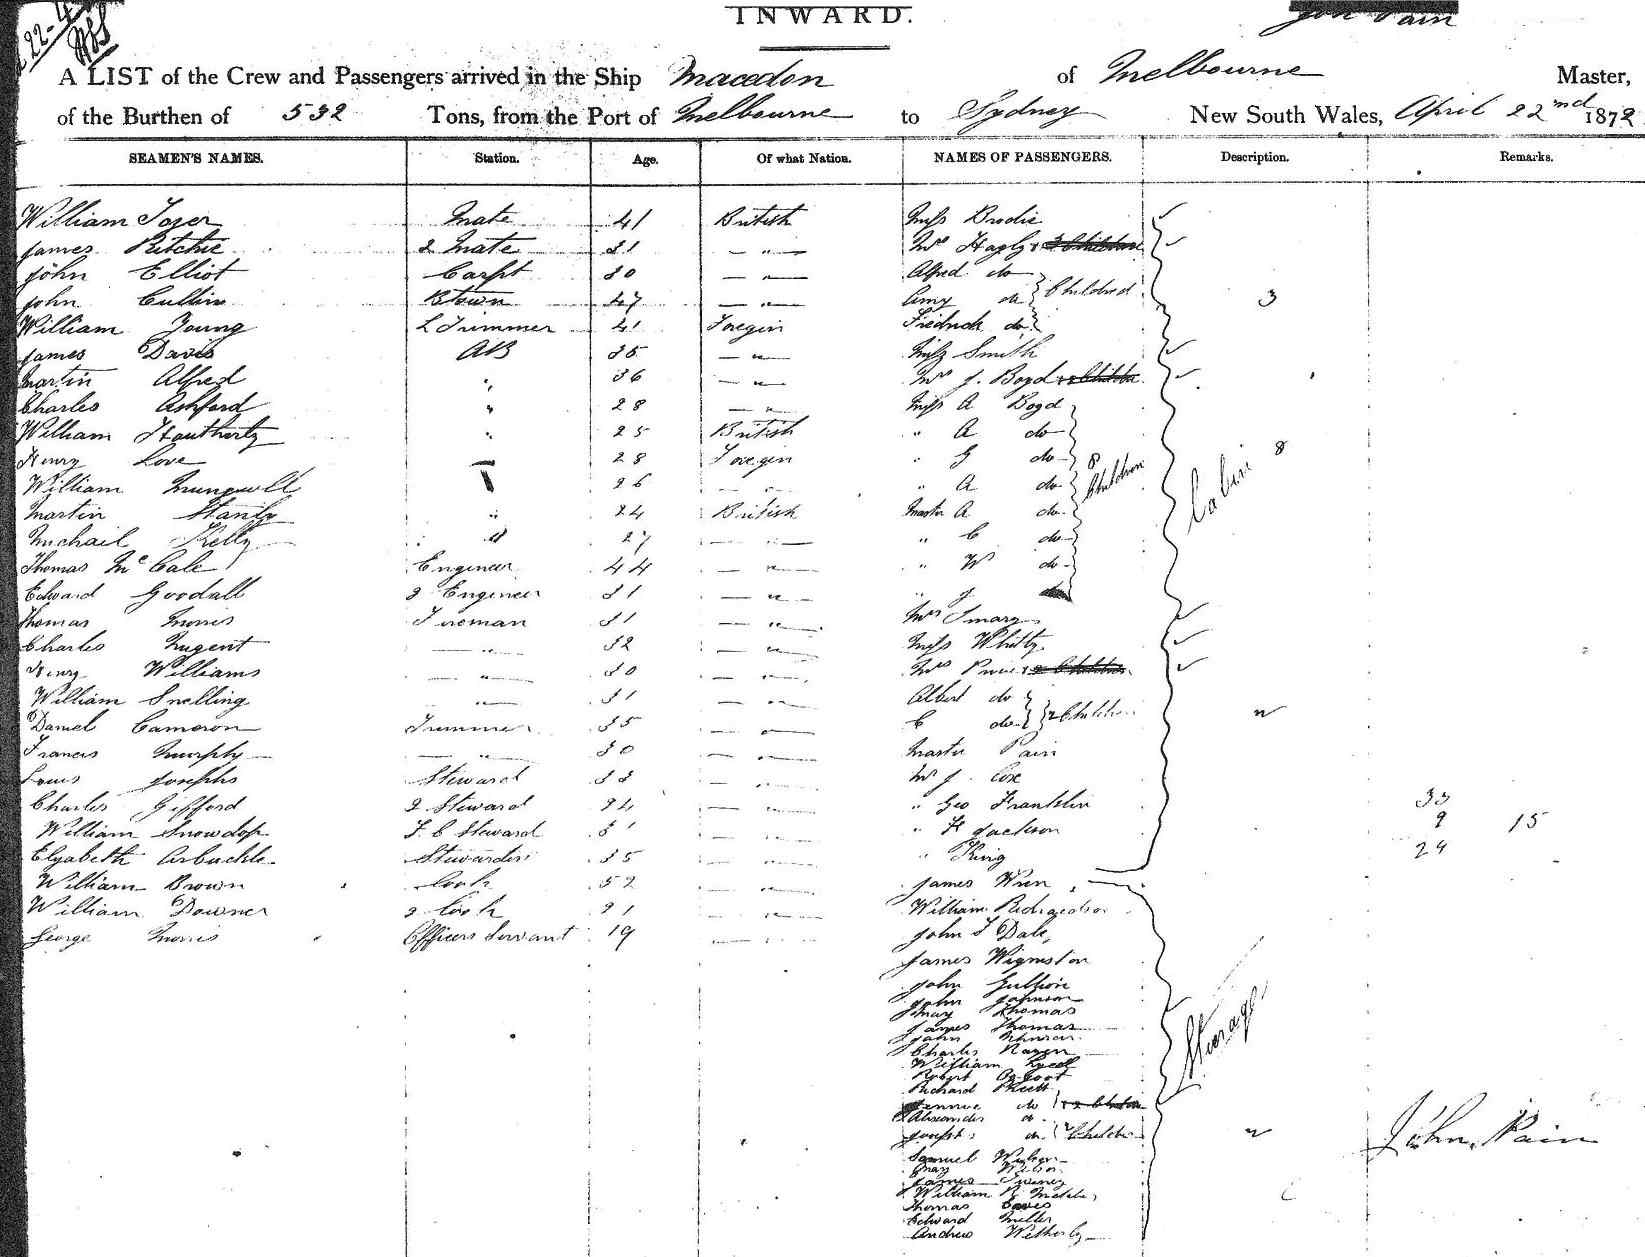 22-4
INWARD.
John Pain
A LIST of the Crew and Passengers arrived in the Ship Macedon of Melbourne Master,
of the Burthen of 532 Tons, from the Port of Melbourne to Sydney New South Wales, April 22nd 1872
SEAMEN'S NAMES. Station. Age. Of what Nation. NAMES OF PASSENGERS. Description. Remarks.
William Tozer Mate 41 British Miss Brodie
James Ritchie 2 Mate 31 — " — Mrs & 3 Children
John Elliot Carpt 30 — " — Alfred do
John Cullin 47 — " — Amy do Children 3
William Young L Trimmer 41 Foregin Fredrick do
James Davis AB 35 — " — Miss Smith
Martin Alfred " 36 — " — Mrs J. Boyd & 8 Children
Charles Ashford " 28 — " — Miss A Boyd
William " 25 British " A do
Henry Love 28 Foregin " G do 8 Cabin 8
William 26 " A do Children
Martin " 24 British Master A do
Michail Kelly " 27 — " — " C do
Thomas McCale Engineer 44 — " — " W do
Edward Goodall 2 Engineer 31 — " — " J
Thomas Morris Fireman 31 — " — Mrs
Charles Nugent — " — 32 — " — Miss Whitty
Henry Williams — " — 30 — " — Mrs & 2 Children
William Snelling — " — 31 — " — Albert do
Daniel Cameron Trimmer 35 — " — C do 2 Children
Francis Murphy — " — 30 — " — Master Pain
Louis Josephs Steward 33 — " — Mr J. Cox
Charles Gifford 2 Steward 24 — " — " Geo Franklin 33
William F. C Steward — " — " H Jackson 9 15
Elyabeth Arbuckle Stewardess 35 — " — " King 24
William Brown Cook 52 — " — James
William Downer 2 Cook 21 — " — William Richardson
George Morris Officers Servant 19 — " — John T Dale
James Wigmston
John Gullion
John Johnson
May Thomas
James Thomas
John Johnson
Charles Steerage
William
Robert
Richard
Jennie do & 2 Children
Alexander do
Joseph do 2 Children
John Pain
Samuel Wilson
Wilson
James
William
Thomas Eaves
Edward Miller
Andrew Witherby